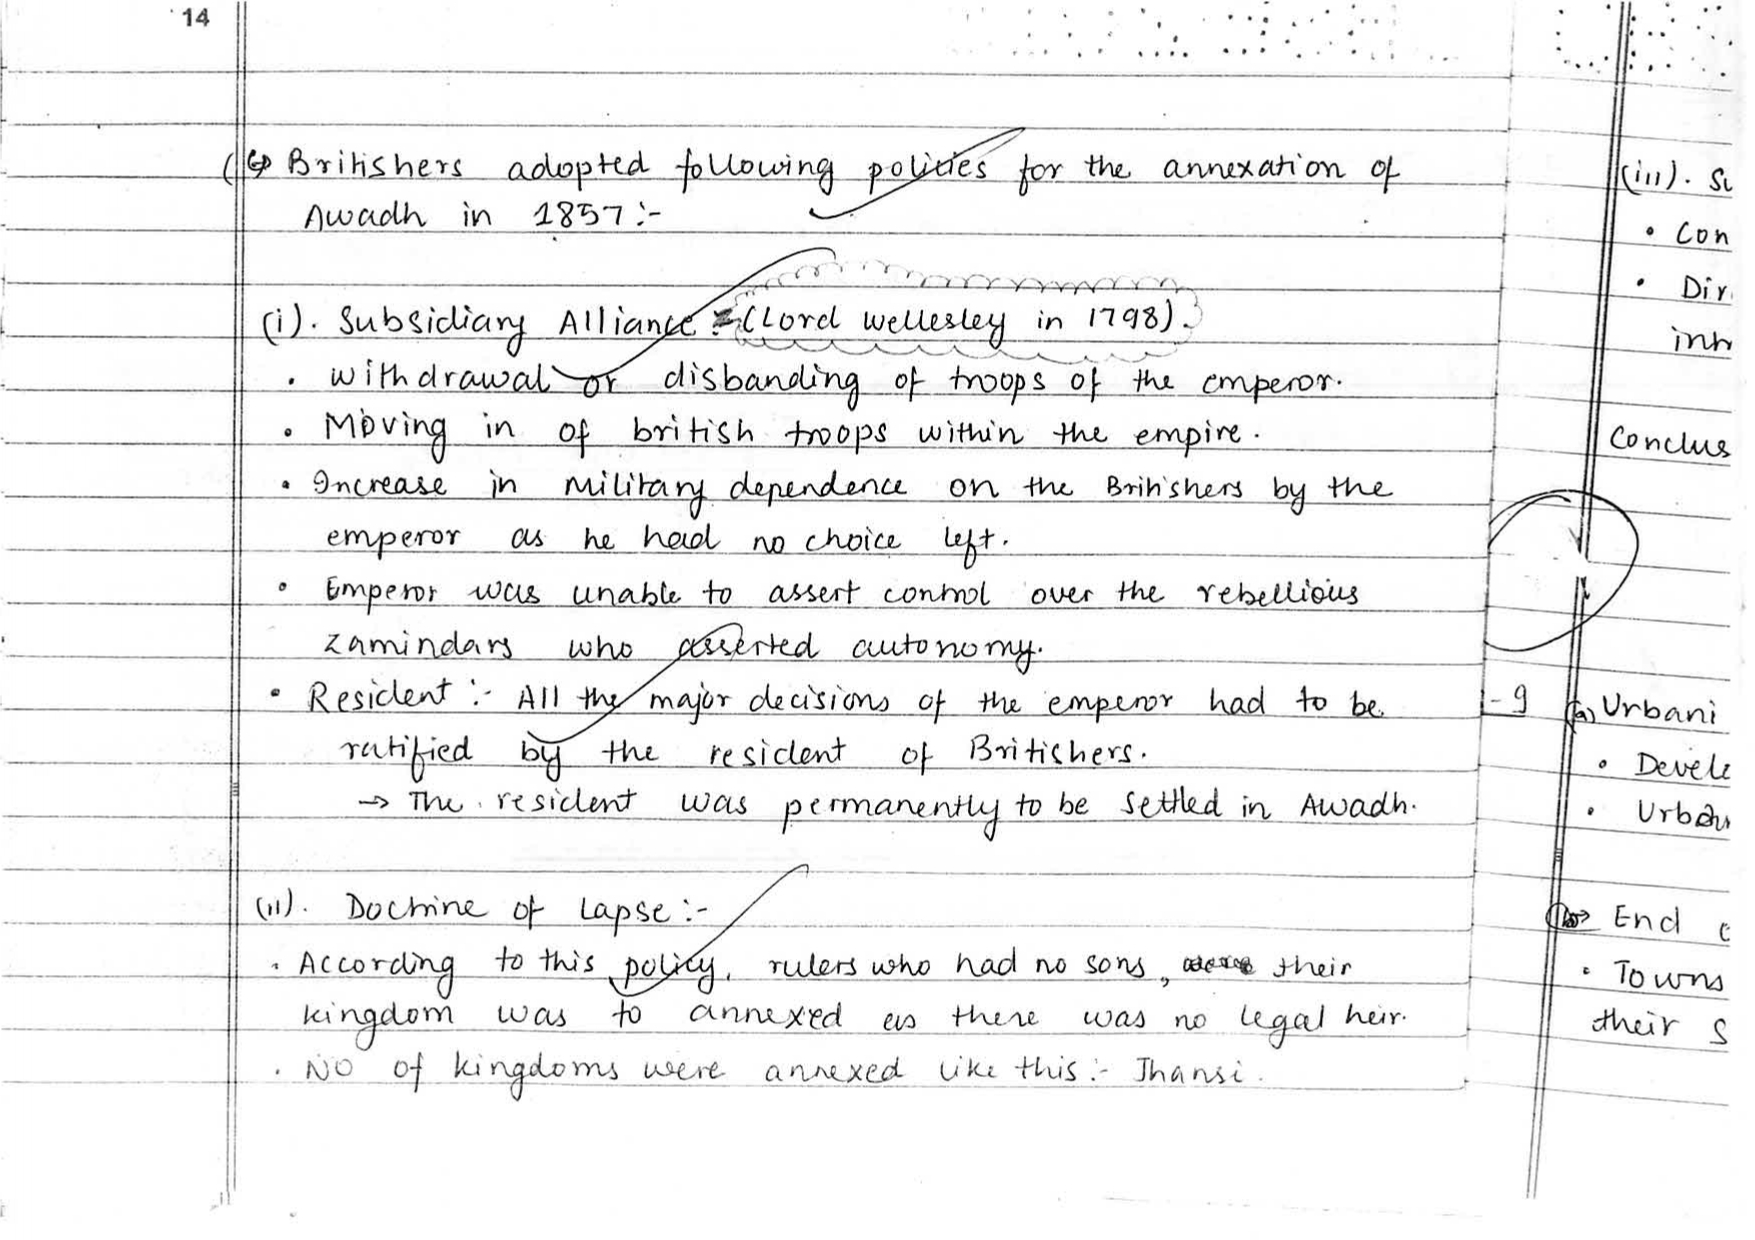 14
Britishers adopted following policies for the annexation of
Awadh in 1857:-
(i). Subsidiary Alliance :- (Lord Wellesley in 1798).
• Withdrawal or disbanding of troops of the emperor.
• Moving in of british troops within the empire.
• Increase in military dependence on the Britishers by the
emperor as he had no choice left.
• Emperor was unable to assert control over the rebellious
zamindars who asserted autonomy.
• Resident :- All the major decisions of the emperor had to be
ratified by the resident of Britishers.
→ The resident was permanently to be settled in Awadh.
(ii). Doctrine of Lapse :-
• According to this policy, rulers who had no sons, their
kingdom was to annexed as there was no legal heir.
• NO of kingdoms were annexed like this :- Jhansi.
(iii). Su
• Con
• Dir
inh
Conclus
-9 (a) Urbani
• Develo
• Urban
(b) → End
• Towns
their S